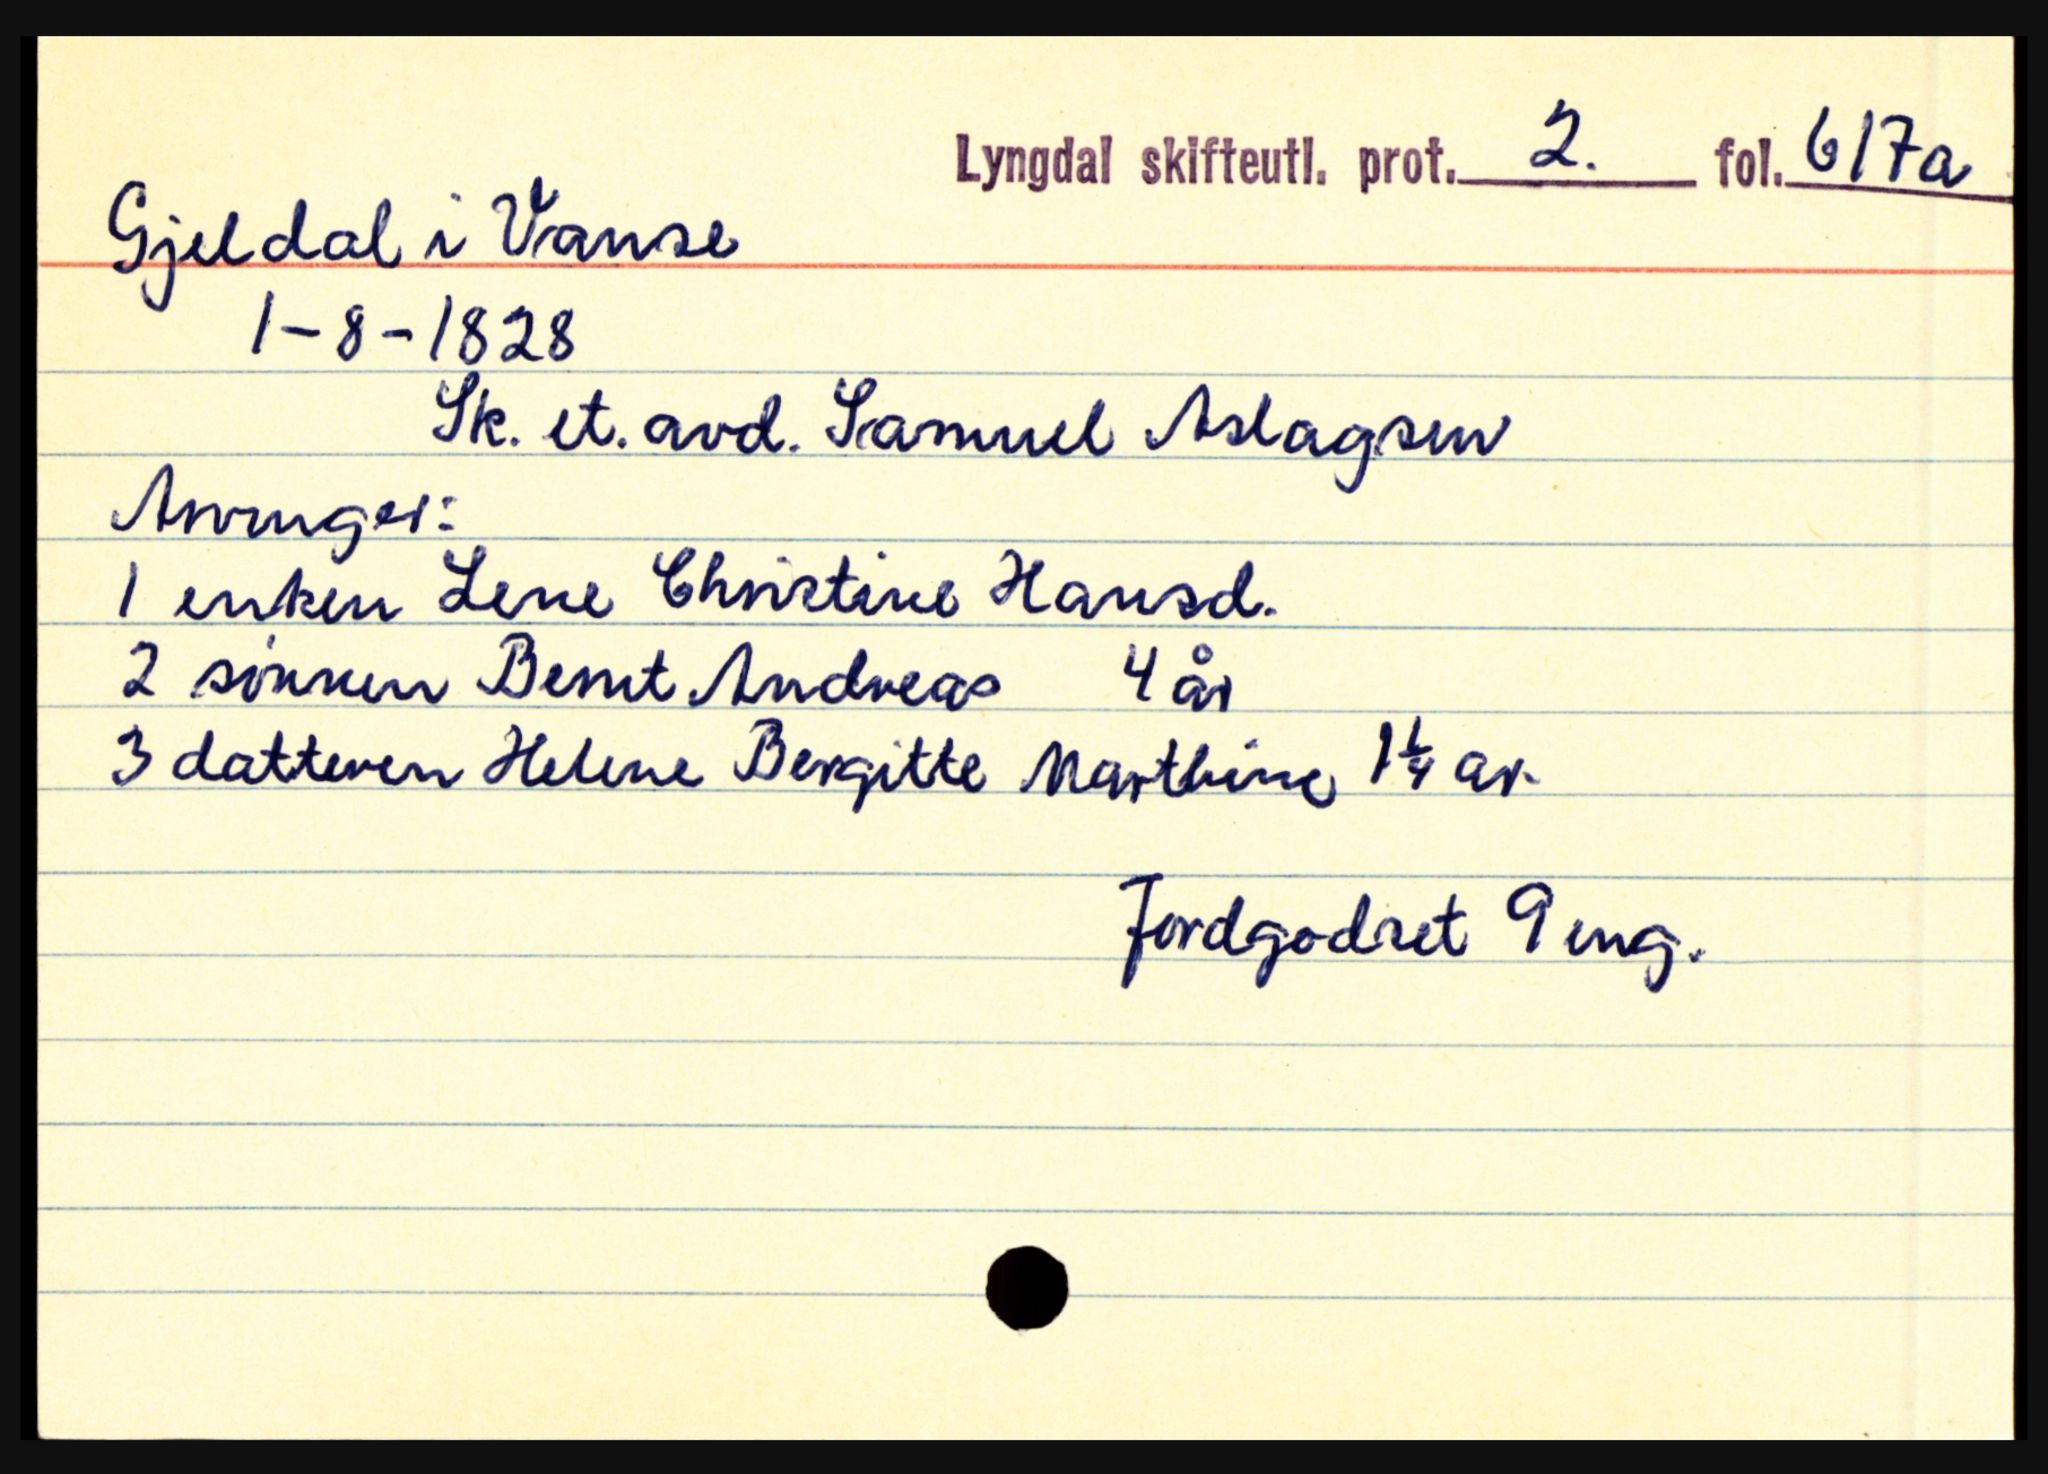 Lyngdal skifteutl. prot. 2. fol. 617a
Gjeldal i Vanse
1-8-1828
Sk. et. avd. Samuel Aslagsen
Arvinger:
1 enken Lene Christine Hansd.
2 sønnen Bernt Andreas 4 år
3 datteren Helene Bergitte Marthine 1 1/4 ar.
Jordgodset 9 eng.